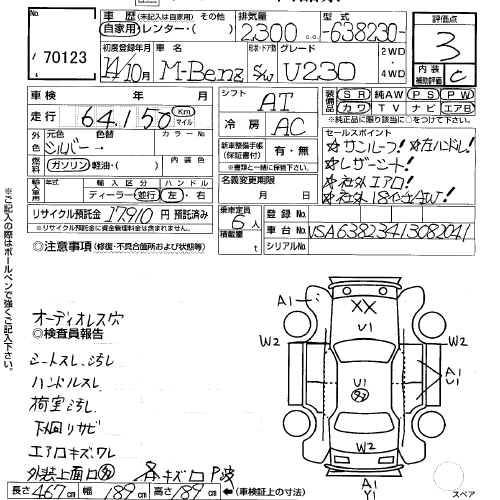 No.
70123
車歴 (未記入は自家用) その他
自家用 レンター・( )
排気量
2,300 c.c.
型式
-638230-
評価点
3
内装
補助評価
C
初度登録年月
14/10月
車名
M-Benz
形状・ドア数
S/W
グレード
V230
2WD
・
4WD
車検 年 月
走行 64,150 Km マイル
外色
元色 シルバー→
色替
カラーNo
燃料
ガソリン 軽油・( )
内装色
輸入車用
年式
輸入区分
ハンドル
ディーラー・並行
左・右
リサイクル預託金 17910 円 預託済み
※リサイクル預託金に資金管理料金は含まれません。
シフト
AT
冷房
AC
装備品
SR 純AW PS PW
カワ TV ナビ エアB
*純正品に限り該当に○をつけて下さい。
セールスポイント
☆サンルーフ! ☆左ハンドル!
☆レザーシート!
☆社外エアロ!
☆社外18インチAW!
新車整備手帳
(保証書付)
有・無
*書類と一緒に保管して下さい。
名義変更期限
月 日
乗車定員 6人
積載量 t
登録No.
車台No. VSA63823413082041
シリアルNo.
◎注意事項 (修復・不具合箇所および状態等)
※ご記入の際はボールペンで強くご記入下さい。
オーディオレス穴
◎検査員報告
シートスレ、汚れ
ハンドルスレ
荷室汚れ
下廻リサビ
エアロキズ、ワレ
A1
XX
U1
W2
W2
A1
U1
U1
W2
A1
スペア
長さ 467 cm 幅 189 cm 高さ 189 cm ←(車検証上の寸法)